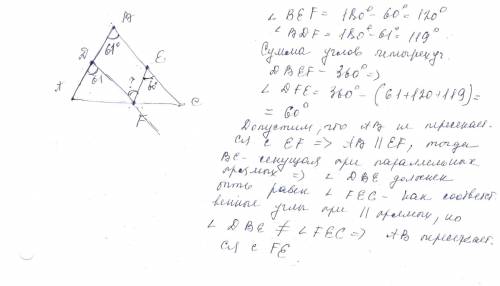 B
61°
D
E
61
?
60
A
F
C
∠ BEF = 180° - 60° = 120°
∠ BDF = 180° - 61° = 119°
Сумма углов четырехуг.
DBEF - 360° =>
∠ DFE = 360° - (61+120+119) =
= 60°
Допустим, что AB не пересекает-
ся с EF => AB || EF, тогда
BE - секущая при параллельных
прямых => ∠ DBE должен
быть равен ∠ FEC - как соответ-
венные углы при || прямых, но
∠ DBE ≠ ∠ FEC => AB пересекает-
ся с FE